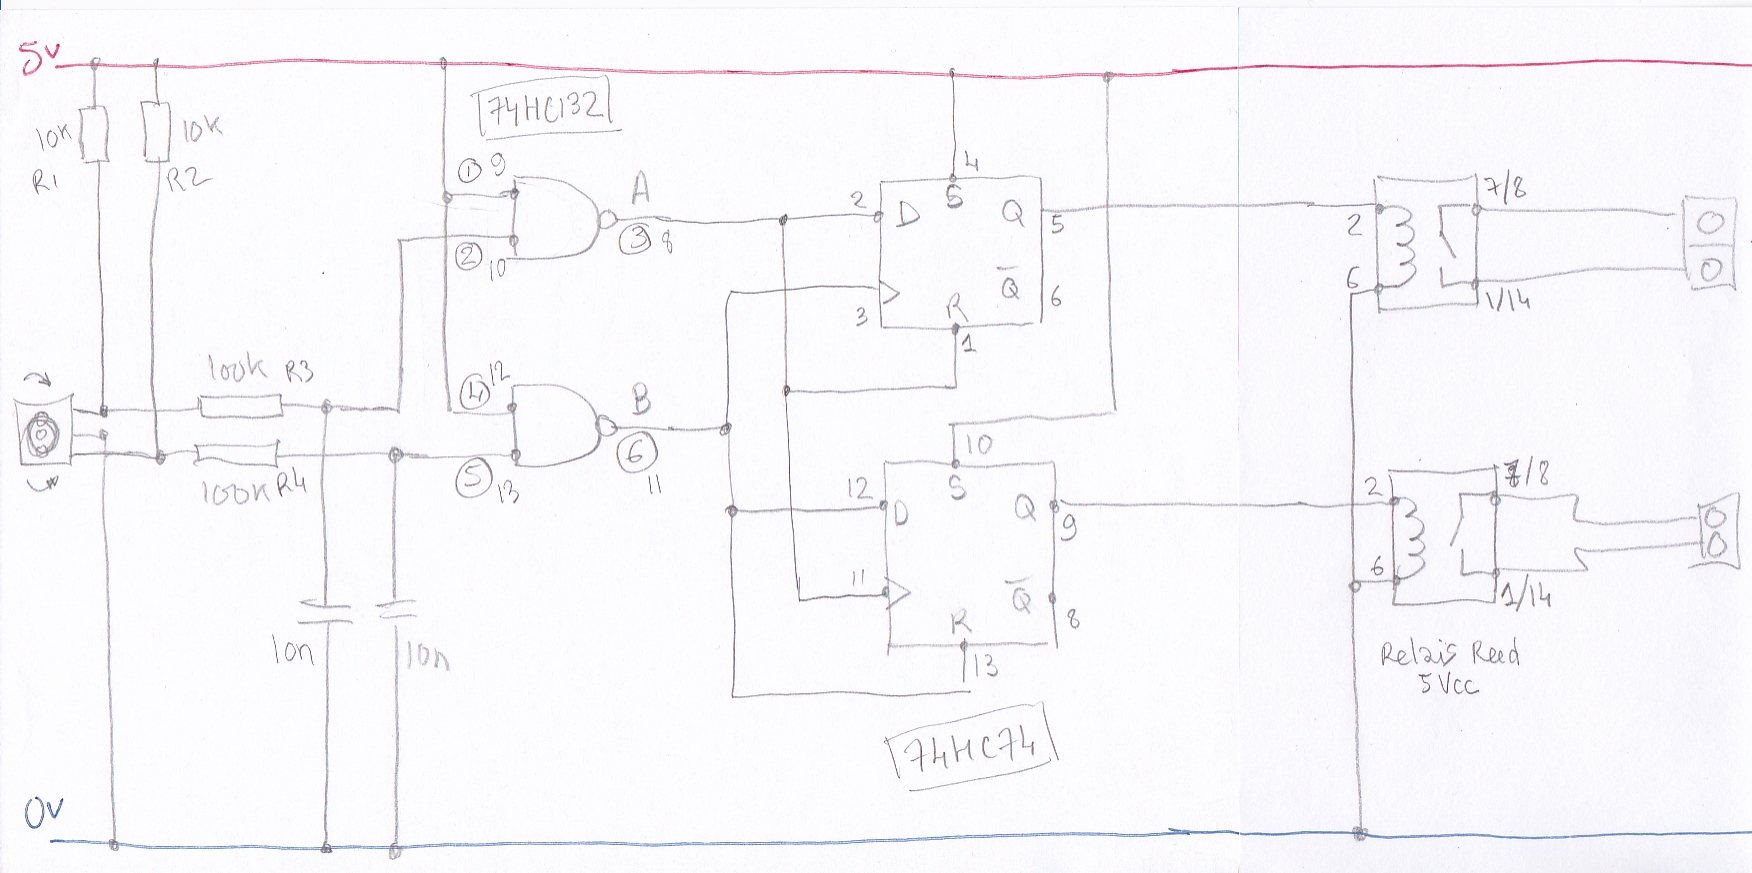 5v
74HC132
10K
10K
R1
R2
1 9
2 10
A
3 8
4
2
D
S
Q
5
Q̅
6
3
R
1
7/8
2
6
1/14
100K R3
100K R4
4 12
5 13
B
6
11
10
12
D
S
Q
9
11
Q̅
8
R
13
2
7/8
6
1/14
10n
10n
Relais Reed
5Vcc
74HC74
0v